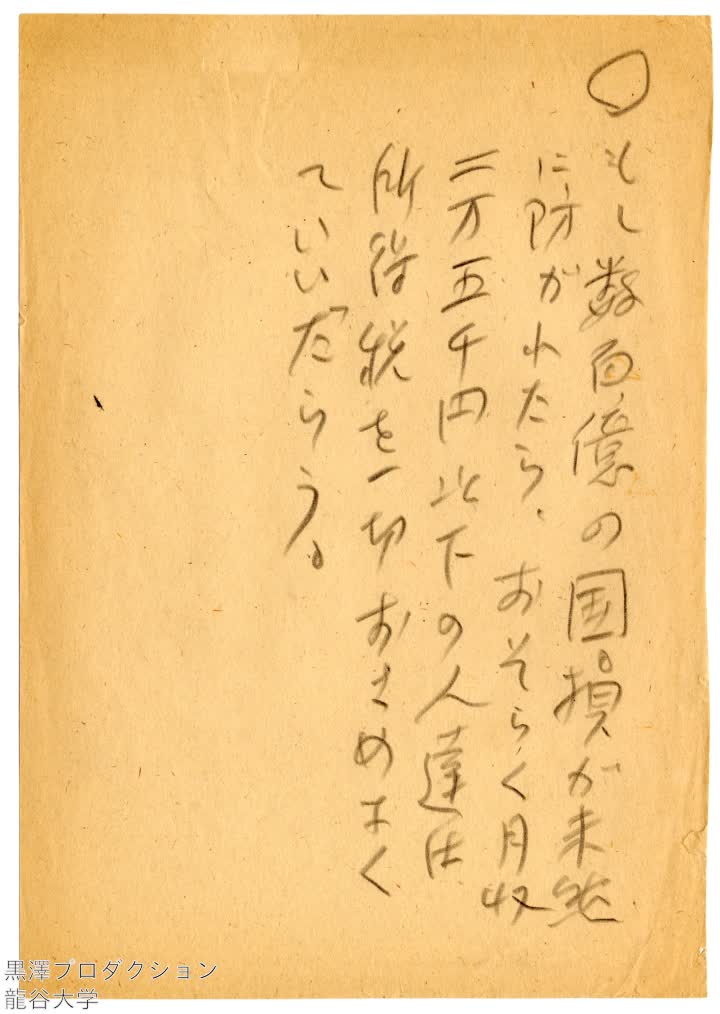 〇もし数百億の国損が未然
に防がれたら、おそらく月収
二万五千円以下の人達は
所得税を一切おさめなく
ていいだらう。
黒澤プロダクション
龍谷大学